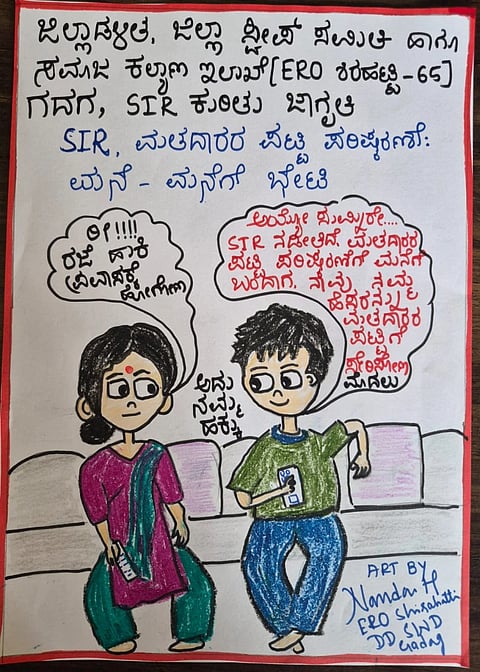 ಜಿಲ್ಲಾಡಳಿತ, ಜಿಲ್ಲಾ ಸ್ವೀಪ್ ಸಮಿತಿ ಹಾಗೂ
ಸಮಾಜ ಕಲ್ಯಾಣ ಇಲಾಖೆ [ERO ಶಿರಹಟ್ಟಿ-65]
ಗದಗ, SIR ಕುರಿತು ಜಾಗೃತಿ
SIR, ಮತದಾರರ ಪಟ್ಟಿ ಪರಿಷ್ಕರಣೆ:
ಮನೆ - ಮನೆಗೆ ಭೇಟಿ
ರೀ !!!!
ರಜೆ ಹಾಕಿ
ಪ್ರವಾಸಕ್ಕೆ
ಹೋಗೋಣ
ಅಯ್ಯೋ ಸುಮ್ನಿರೇ....
SIR ನಡೀತಿದೆ ಮತದಾರರ
ಪಟ್ಟಿ ಪರಿಷ್ಕರಣೆಗೆ ಮನೆಗೆ
ಬಂದಾಗ, ನಾವು ನಮ್ಮ
ಹೆಸರನ್ನು
ಮತದಾರರ
ಪಟ್ಟಿಗೆ
ಸೇರಿಸೋಣ
ಮೊದಲು
ಅದು
ನಮ್ಮ
ಹಕ್ಕು
ART BY
ERO Shirahatti
DD SWD
Gadag